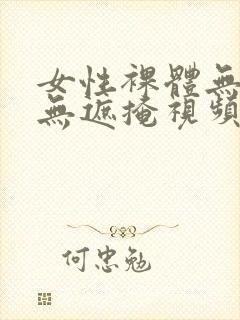 女性裸體無
無遮掩視頻
何忠勉